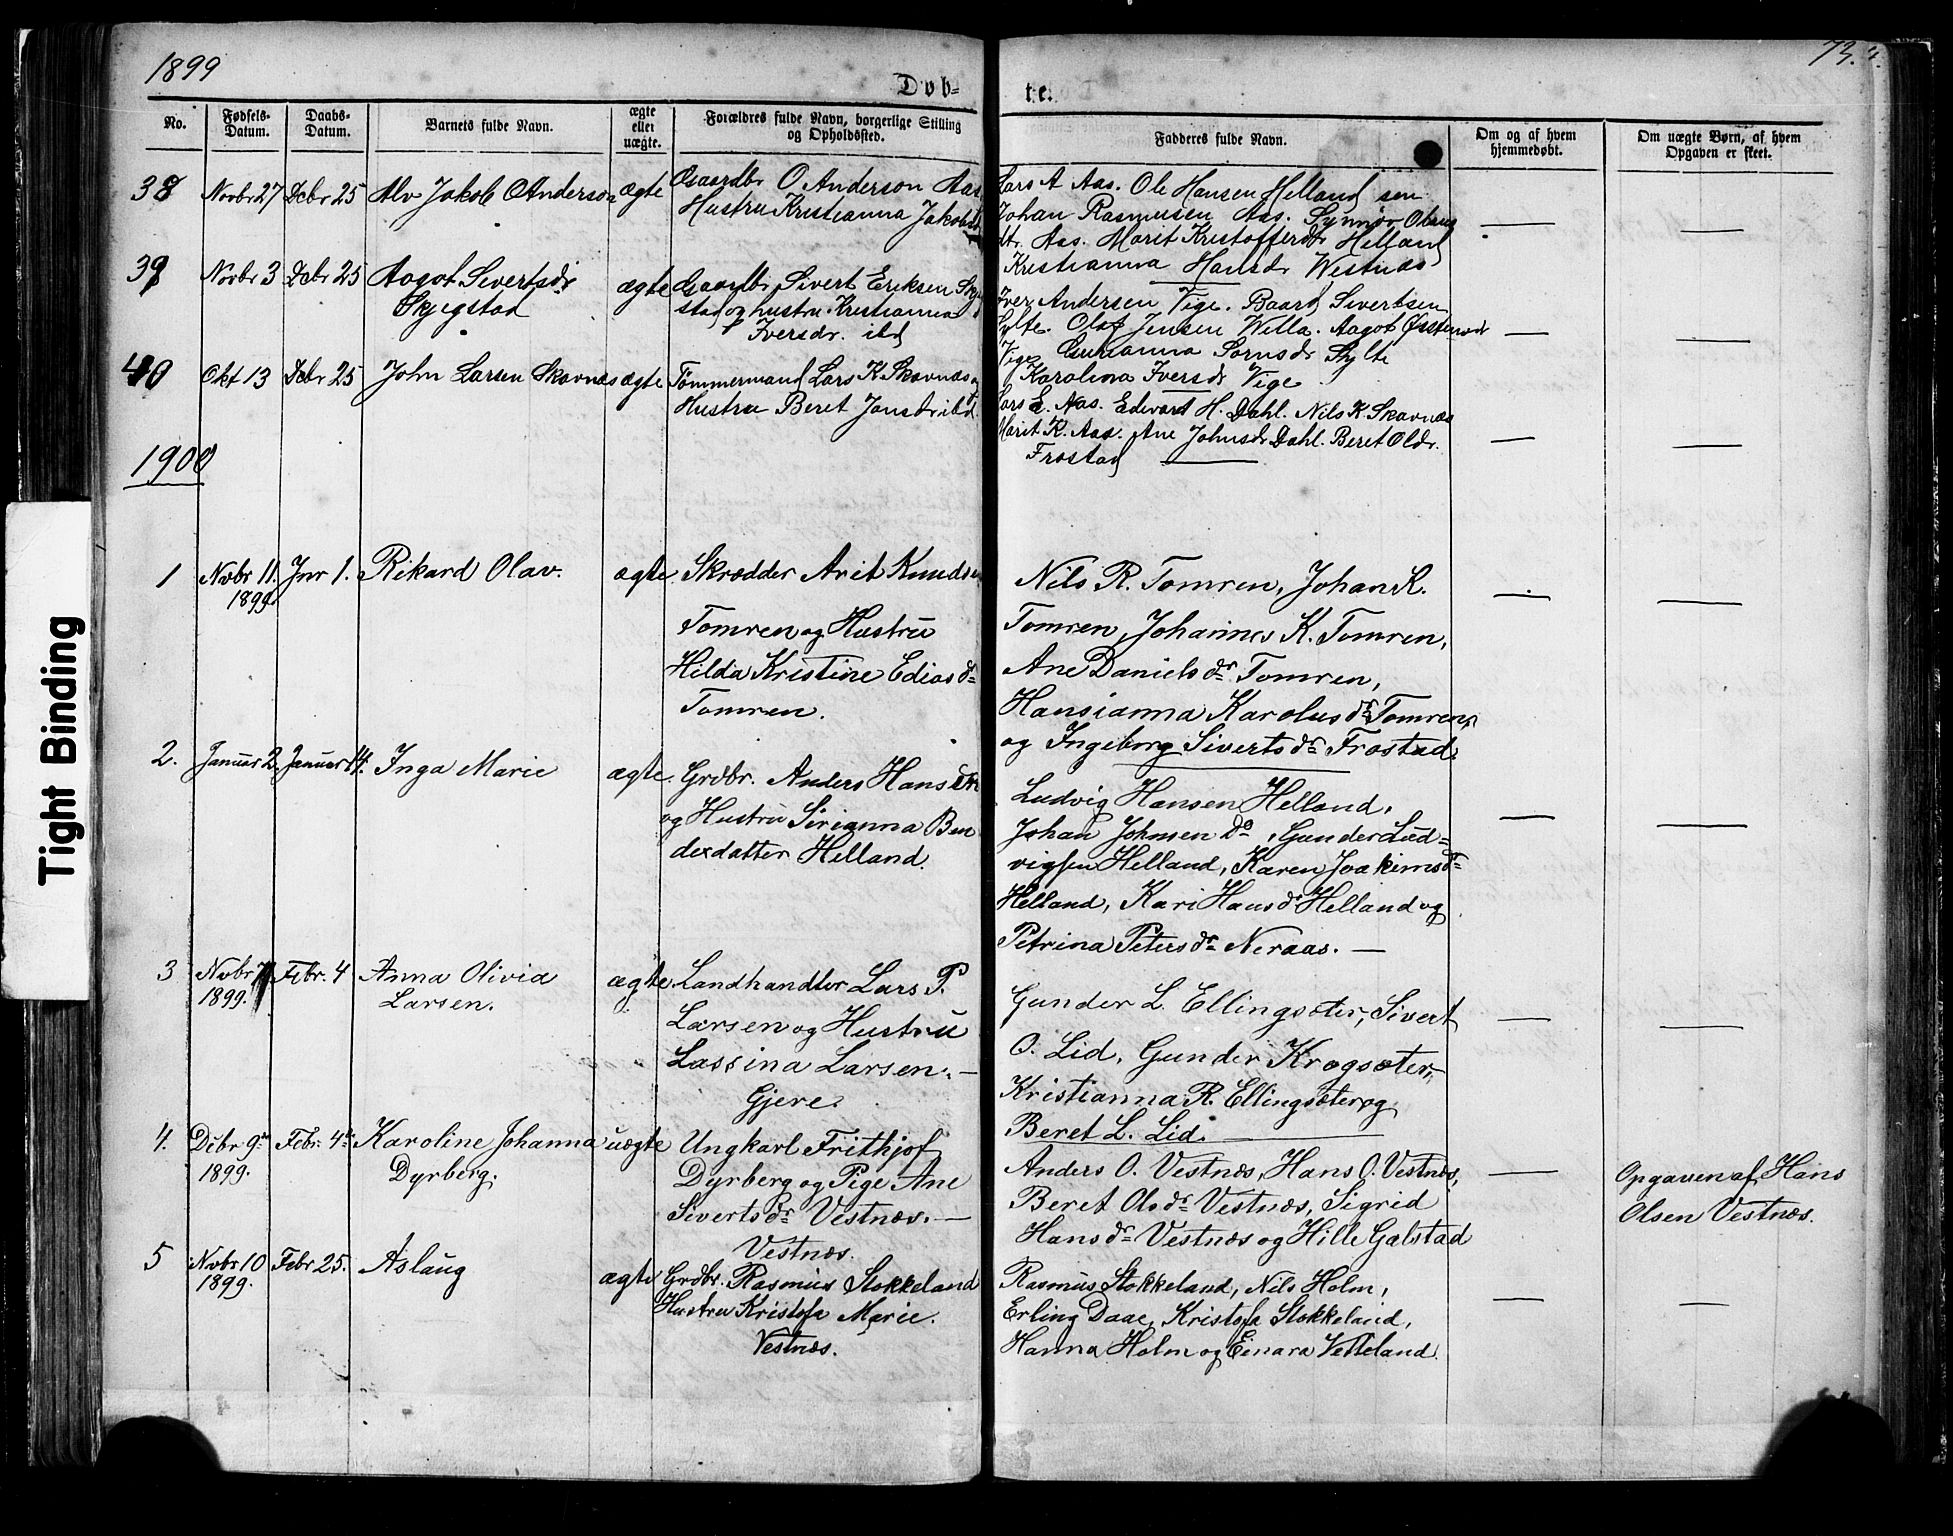 1899
73.
Døb=
te.
No.
Fødsels-
Datum.
Daabs-
Datum.
Barnets fulde Navn.
ægte
eller
uægte.
Forældres fulde Navn, borgerlige Stilling
og Opholdssted.
Fadderes fulde Navn.
Om og af hvem
hjemmedøbt.
Om uægte Børn, af hvem
Opgaven er skeet.
38 Novbr 27 Debr 25 Alv Jakob OAnderson ægte Gaardbr O Anderson Aas
Hustru Kristianna
Lars A Aas. Ole Hansen Helland sen
Johan Rasmusen Aas. Synnøv Olsens
dtr. Aas. Marit Kristofferdtr Helland
Kristianna Hansdr Westnæs
39 Novbr 3 Debr 25 Aagot Sivertsdr
Skjegstad
ægte Gaardbr Sivert Eriksen
stad og hustru Kristianna
Iversdr. ibd
Iver Andersen Vige. Baard Sivertsen
Sylte. Olaf Jensen Willa. Aagot
Vige Sylte
Karolina Iversdr Vige
40 Okt 13 Debr 25 John Larsen Skavnæs ægte Tømmermand Lars K Skavnæs og
Hustru Beret Jonsdr ibd.
Lars E. Aas. Edvard H. Dahl. Nils K. Skavnæs
Marit K. Aas. Ane Johnsdr Dahl. Beret Oldr.
Frostad
1900
1 Novbr 11. Jnr 1. Rikard Olav. ægte Skrædder Arit Knudsen
1899
Tomren og Hustru
Hilda Kristine Ediasdr
Tomren.
Nils R. Tomren, Johan K.
Tomren, Johannes K. Tomren,
Ane Danielsdr Tomren,
Hansianna Karolusdr Tomren,
og Ingeborg Sivertsdr Frostad.
2. Januar 2. Januar 14. Inga Marie ægte. Grdbr. Anders Hansen
og Hustru Sirianna Ben
derdatter Helland.
Ludvig Hansen Helland,
Johan Johnsen do, Gunder Lud=
vigsen Helland, Karen Joakimsdr
Helland, Kari Hansdr Helland og
Petrina Petersdr Neraas. —
3 Novbr Febr. 4 Anna Olivia
1899. Larsen.
ægte Landhandler Lars P.
Larsen og Hustru
Lassina Larsen. —
Gjere.
Gunder L. Ellingsæter, Sivert
O. Lid, Gunder Krogsæter,
Kristianna R. Ellingsæter og
Beret L. Lid.
4. Debr 9de Febr. 4de Karoline Johanna uægte Ungkarl Frithjof
1899. Dyrberg.
Dyrberg og Pige Ane
Sivertsdr Vestnæs. —
Vestnæs.
Anders O. Vestnæs, Hans O. Vestnæs,
Beret Olsdr Vestnæs, Sigrid
Hansdr Vestnæs og Hille Galstad
Opgaven af Hans
Olsen Vestnæs.
5 Novbr 10 Febr 25. Aslaug ægte Grdbr. Rasmus Stokkeland
1899.
Hustru Kristofa Marie.
Vestnæs.
Rasmus Stokkeland, Nils Holm,
Erling Daae, Kristofa Stokkeland,
Hanna Holm og Einara Vetteland.
Tight Binding